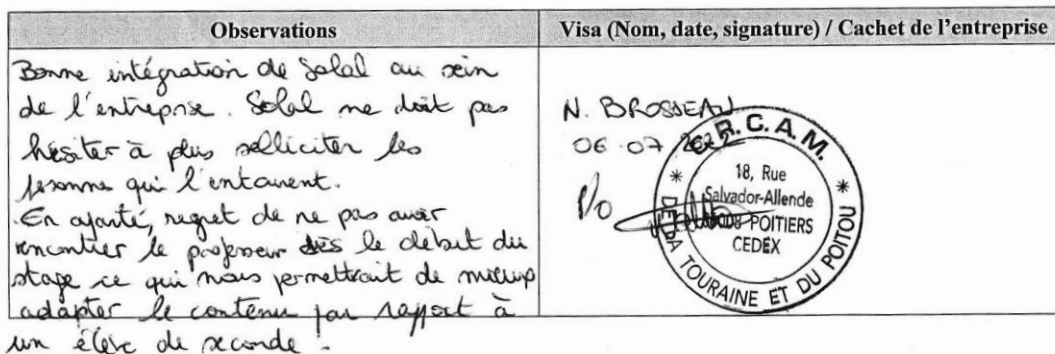 Observations
Visa (Nom, date, signature) / Cachet de l'entreprise
Bonne intégration de Solal au sein
de l'entreprise. Solal ne doit pas
hésiter à plus solliciter les
personne qui l'entourent.
En aparté, regret de ne pas avoir
rencontrer le professeur dès le début du
stage ce qui nous permettrait de mieux
adapter le contenu par rapport à
un élève de seconde.
N. BROSSEAU
06.07
P/o
C.R.C.A.M.
18, Rue
Salvador-Allende
POITIERS
CEDEX
DE LA TOURAINE ET DU POITOU